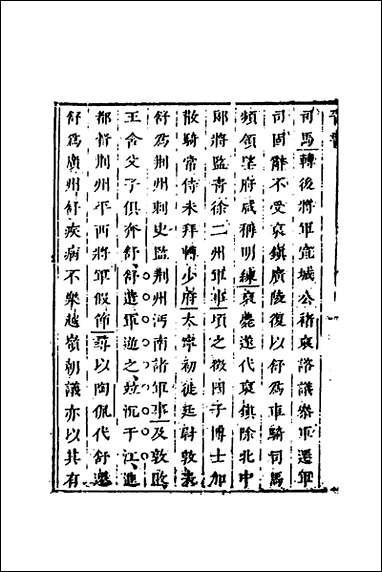 司馬轉後將軍宣城公褚裒諮議參軍遷軍
司固辭不受裒鎮廣陵復以舒爲車騎司馬
頻領望府咸稱明練裒薨遂代裒鎮除北中
郎將監青徐二州軍事頃之徵國子博士加
散騎常侍未拜轉少府太寧初徙廷尉敦表
舒爲荆州刺史監荆州沔南諸軍事及敦敗
王含父子俱奔舒舒遣軍逆之並沉于江進
都督荆州平西將軍假節尋以陶侃代舒遷
舒爲廣州舒疾病不樂越嶺朝議亦以其有